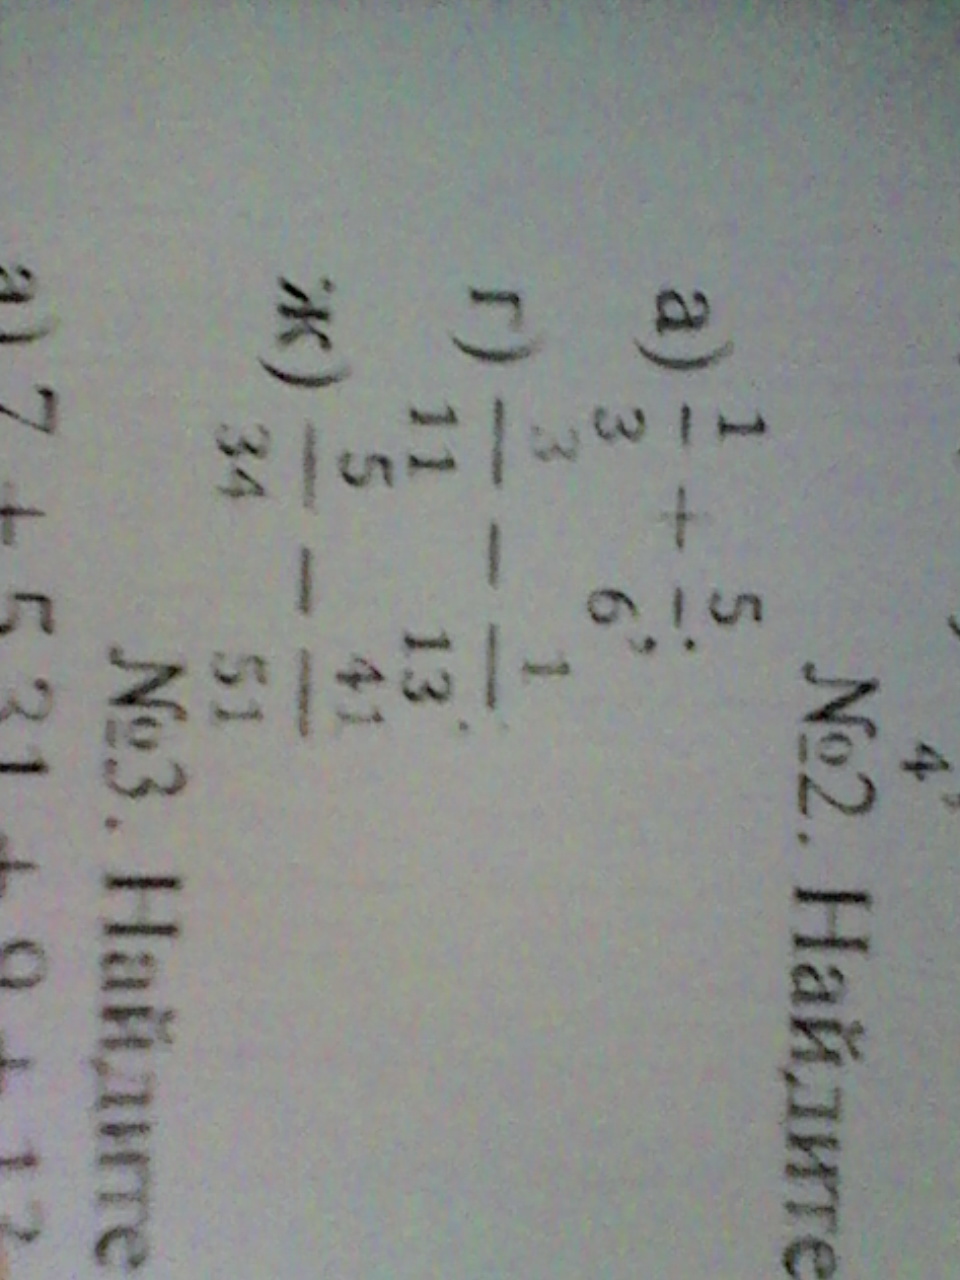 4,
№2. Найдите
а) 1/3 + 5/6;
г) 3/11 − 1/13;
ж) 5/34 − 41/51
№3. Найдите
а) 7 + 5